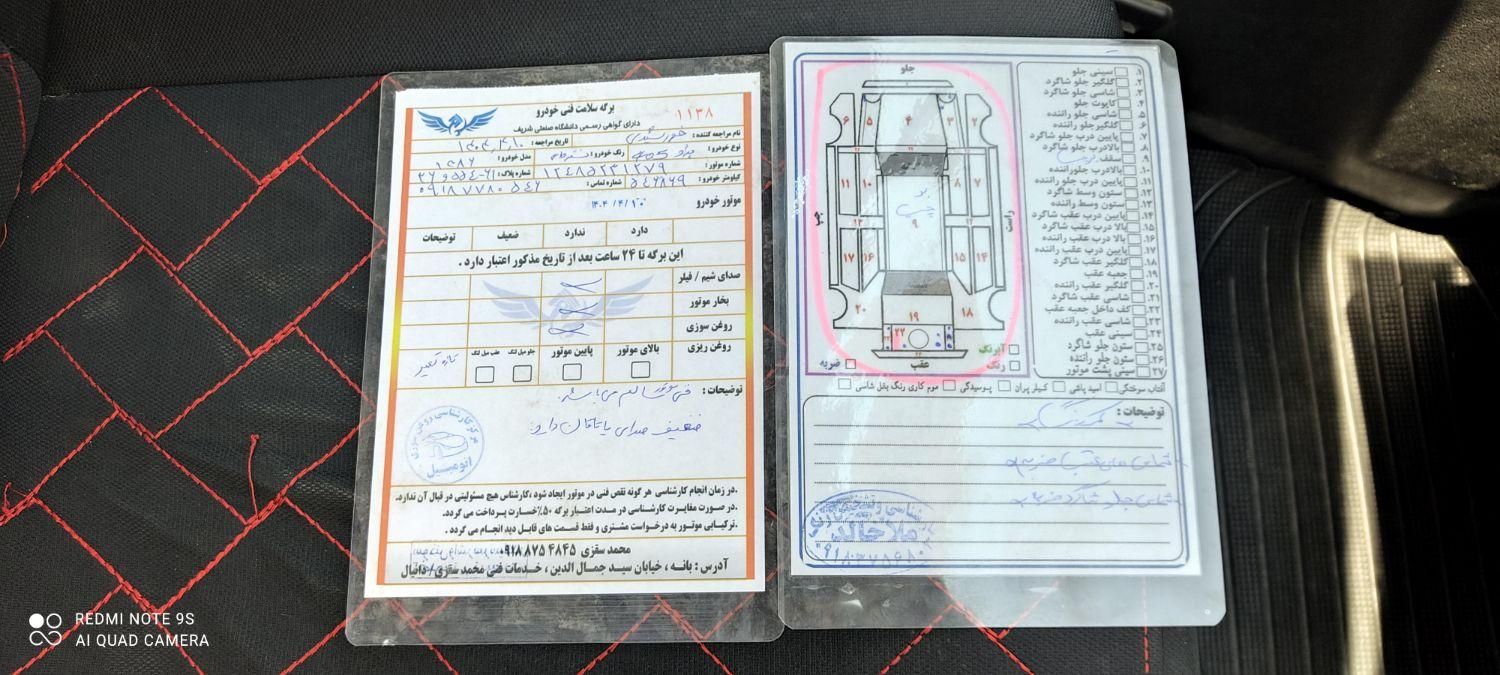 برگه سلامت فنی خودرو
۱۱۳۸
دارای گواهی رسمی دانشگاه صنعتی شریف
نام مراجعه کننده :
تاریخ مراجعه :
نوع خودرو :
رنگ خودرو :
مدل خودرو :
شماره موتور : ۱۲۴۸۵۲۳۱۲۷۹
شماره پلاک :
کیلومتر خودرو : ۵۴۶۸۶۹
شماره تماس : ۰۹۱۸۷۷۸۰۵۴۶
موتور خودرو
دارد
ندارد
ضعیف
توضیحات
این برگه تا ۲۴ ساعت بعد از تاریخ مذکور اعتبار دارد .
صدای شیم / فیلر
بخار موتور
روغن سوزی
روغن ریزی
بالای موتور
پایین موتور
جلو میل لنگ
عقب میل لنگ
تازه تعمیر
توضیحات : فنی موتور سالم می باشد.
ضعیف صدای یاتاقان دارد
مرکز کارشناسی روغن سوزی
اتومبیل
.در زمان انجام کارشناسی هر گونه نقص فنی در موتور ایجاد شود ،کارشناس هیچ مسئولیتی در قبال آن ندارد.
.در صورت مغایرت کارشناسی در مدت اعتبار برگه ۵۰٪خسارت پرداخت می گردد.
.ترکیابی موتور به درخواست مشتری و فقط قسمت های قابل دید انجام می گردد .
محمد سقزی ۰۹۱۸۸۷۵۴۸۴۵
آدرس : بانه ، خیابان سید جمال الدین ، خدمات فنی محمد سقزی / دانیال
جلو
۶ ۵ ۴ ۳ ۲
۱۱ ۱۰ ۸ ۷
چپ
راست
۹
۱۳ ۱۲
۱۷ ۱۶ ۱۵ ۱۴
۲۰ ۱۹ ۱۸
۲۲
عقب
آبرنگ
رنگ
ضربه
۱. سینی جلو
۲. گلگیر جلو شاگرد
۳. شاسی جلو شاگرد
۴. کاپوت جلو
۵. شاسی جلو راننده
۶. گلگیرجلو راننده
۷. پایین درب جلو شاگرد
۸. بالادرب جلو شاگرد
۹. سقف
۱۰. بالادرب جلوراننده
۱۱. پایین درب جلو راننده
۱۲. ستون وسط شاگرد
۱۳. ستون وسط راننده
۱۴. پایین درب عقب شاگرد
۱۵. بالا درب عقب شاگرد
۱۶. بالا درب عقب راننده
۱۷. پایین درب عقب راننده
۱۸. گلگیر عقب شاگرد
۱۹. جعبه عقب
۲۰. گلگیر عقب راننده
۲۱. شاسی عقب شاگرد
۲۲. کف داخل جعبه عقب
۲۳. شاسی عقب راننده
۲۴. سینی عقب
۲۵. ستون جلو شاگرد
۲۶. ستون جلو راننده
۲۷. سینی پشت موتور
آفتاب سوختگی
اسید پاشی
کیلر پران
پوسیدگی
موم کاری رنگ بغل شاسی
توضیحات :
شاسی های عقب ضربه
شاسی جلو شاگرد ضربه
ملا خالد
REDMI NOTE 9S
AI QUAD CAMERA